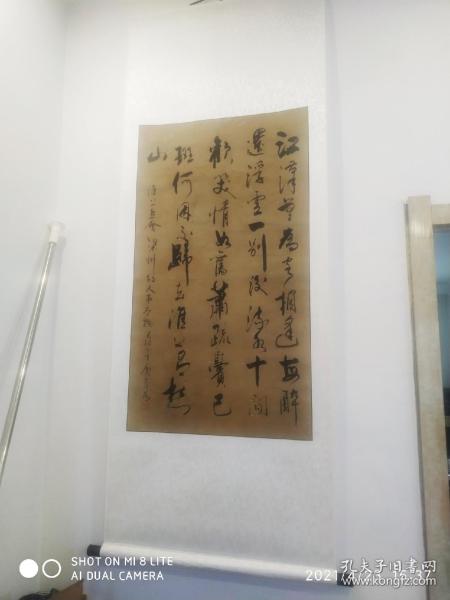 江漢曾為客相逢每醉
還浮雲一别後流水十間
歡笑情如舊蕭疏鬢已
斑何因不歸去淮上秋
山
淮上喜會梁州故人
SHOT ON MI 8 LITE
AI DUAL CAMERA
2021
孔夫子旧书网
www.kongfz.com